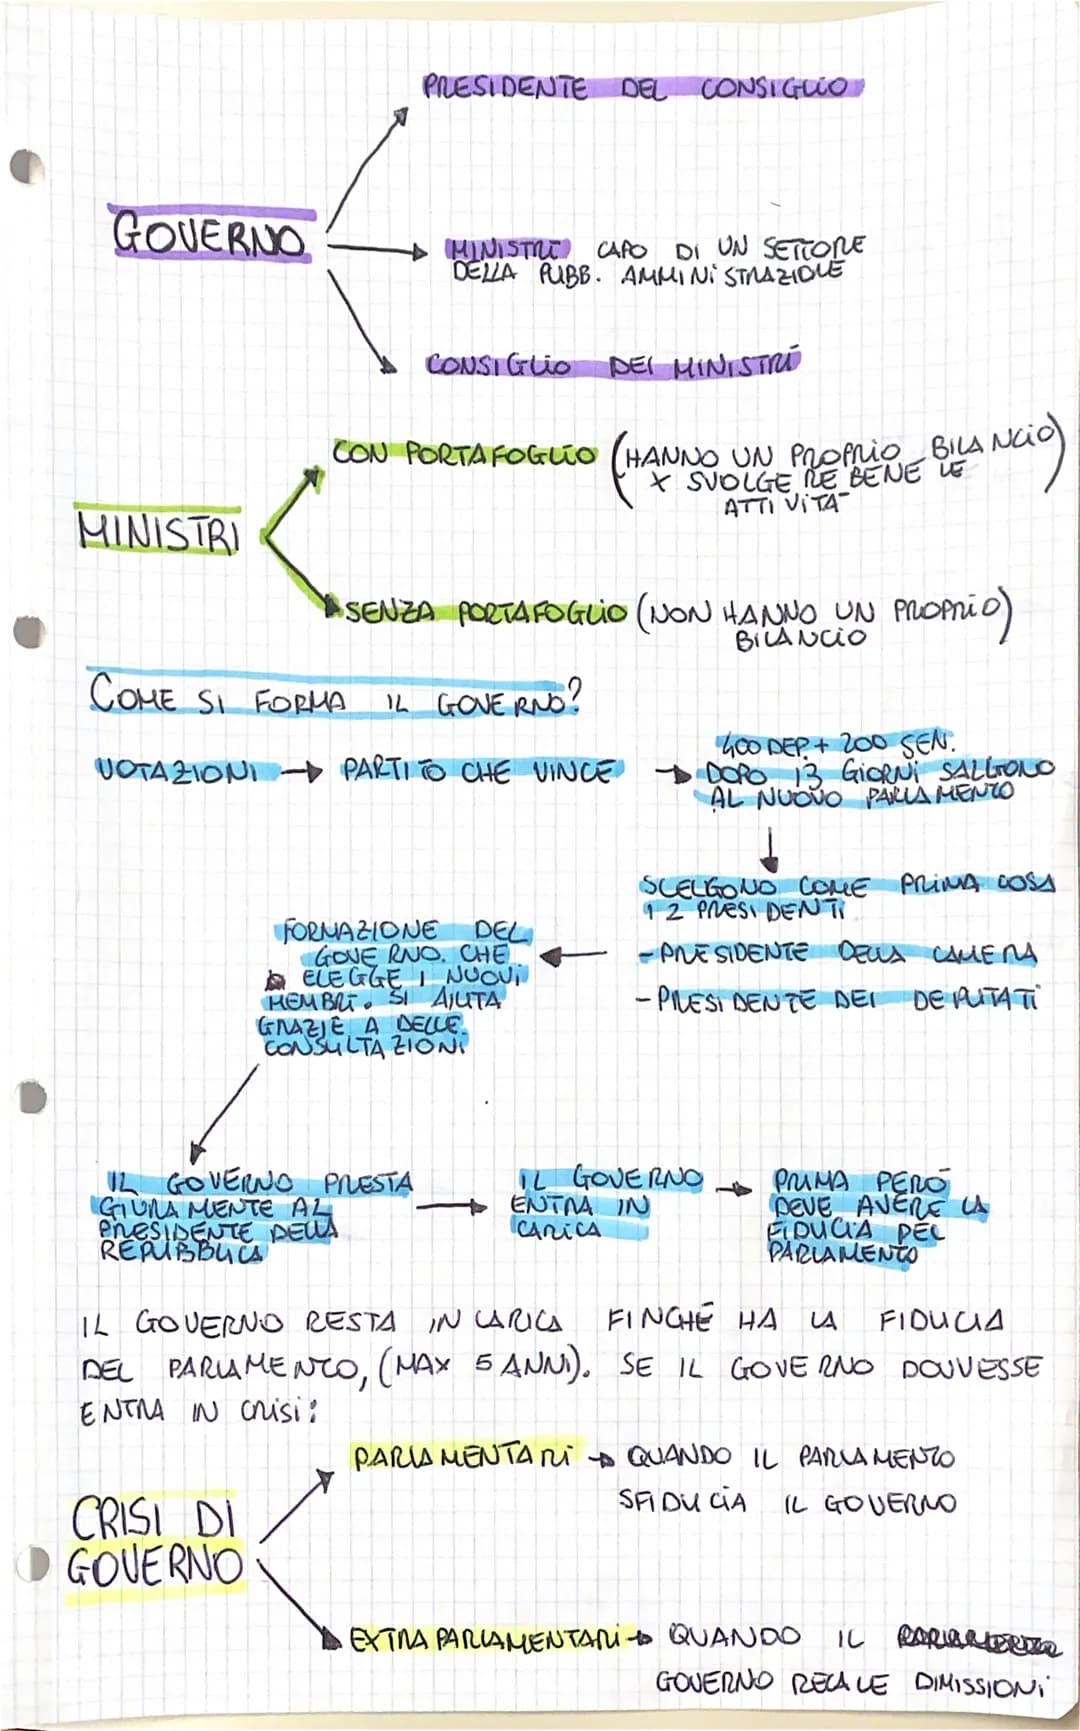 PRESIDENTE DEL CONSIGLIO
GOVERNO
MINISTRI CAPO DI UN SETTORE
DELLA PUBB. AMMINISTRAZIOLE
CONSIGLIO DEI MINISTRI
CON PORTAFOGLIO (HANNO UN PROPRIO BILANCIO)
X SVOLGERE BENE LE
ATTIVITA'
MINISTRI
SENZA PORTAFOGLIO (NON HANNO UN PROPRIO)
BILANCIO
COME SI FORMA IL GOVERNO?
VOTAZIONI → PARTITO CHE VINCE →
400 DEP. + 200 SEN.
DOPO 13 GIORNI SALGONO
AL NUOVO PARLAMENTO
SCELGONO COME PRIMA COSA
I 2 PRESIDENTI
- PRESIDENTE DELLA CAMERA
- PRESIDENTE DEI DEPUTATI
FORMAZIONE DEL
GOVERNO. CHE
ELEGGE I NUOVI
MEMBRI. SI AIUTA
GRAZIE A DELLE
CONSULTAZIONI
IL GOVERNO PRESTA
GIURAMENTE AL
PRESIDENTE DELLA
REPUBBLICA
IL GOVERNO
ENTRA IN
CARICA
PRIMA PERÒ
DEVE AVERE LA
FIDUCIA DEL
PARLAMENTO
IL GOVERNO RESTA IN CARICA FINCHÉ HA LA FIDUCIA
DEL PARLAMENTO, (MAX 5 ANNI). SE IL GOVERNO DOVVESSE
ENTRA IN CRISI:
PARLAMENTARI → QUANDO IL PARLAMENTO
SFIDUCIA IL GOVERNO
CRISI DI
GOVERNO
EXTRAPARLAMENTARI → QUANDO IL
GOVERNO RECA LE DIMISSIONI